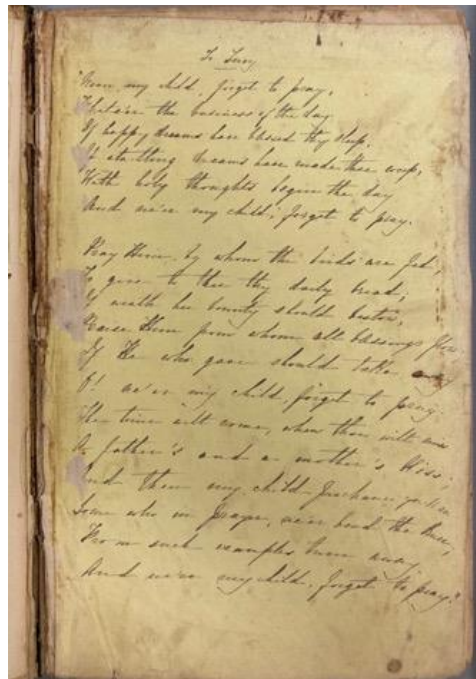 To Lucy
"Never, my child, forget to pray,
Whate'er the business of the day
If happy dreams have blessed thy sleep,
If startling dreams have made thee weep,
With holy thoughts begin the day
And ne'er my child, forget to pray.
Pray Him, by whom the birds are fed,
To give to thee thy daily bread;
If wealth her bounty should bestow,
Praise Him from whom all blessings flow
If He who gave should take away
O! ne'er my child, forget to pray.
The time will come, when thou wilt miss
A father's and a mother's kiss;
And then my child perchance you'll see
Some who in prayer, ne'er bend the knee,
From such examples turn away,
And ne'er my child, forget to pray."